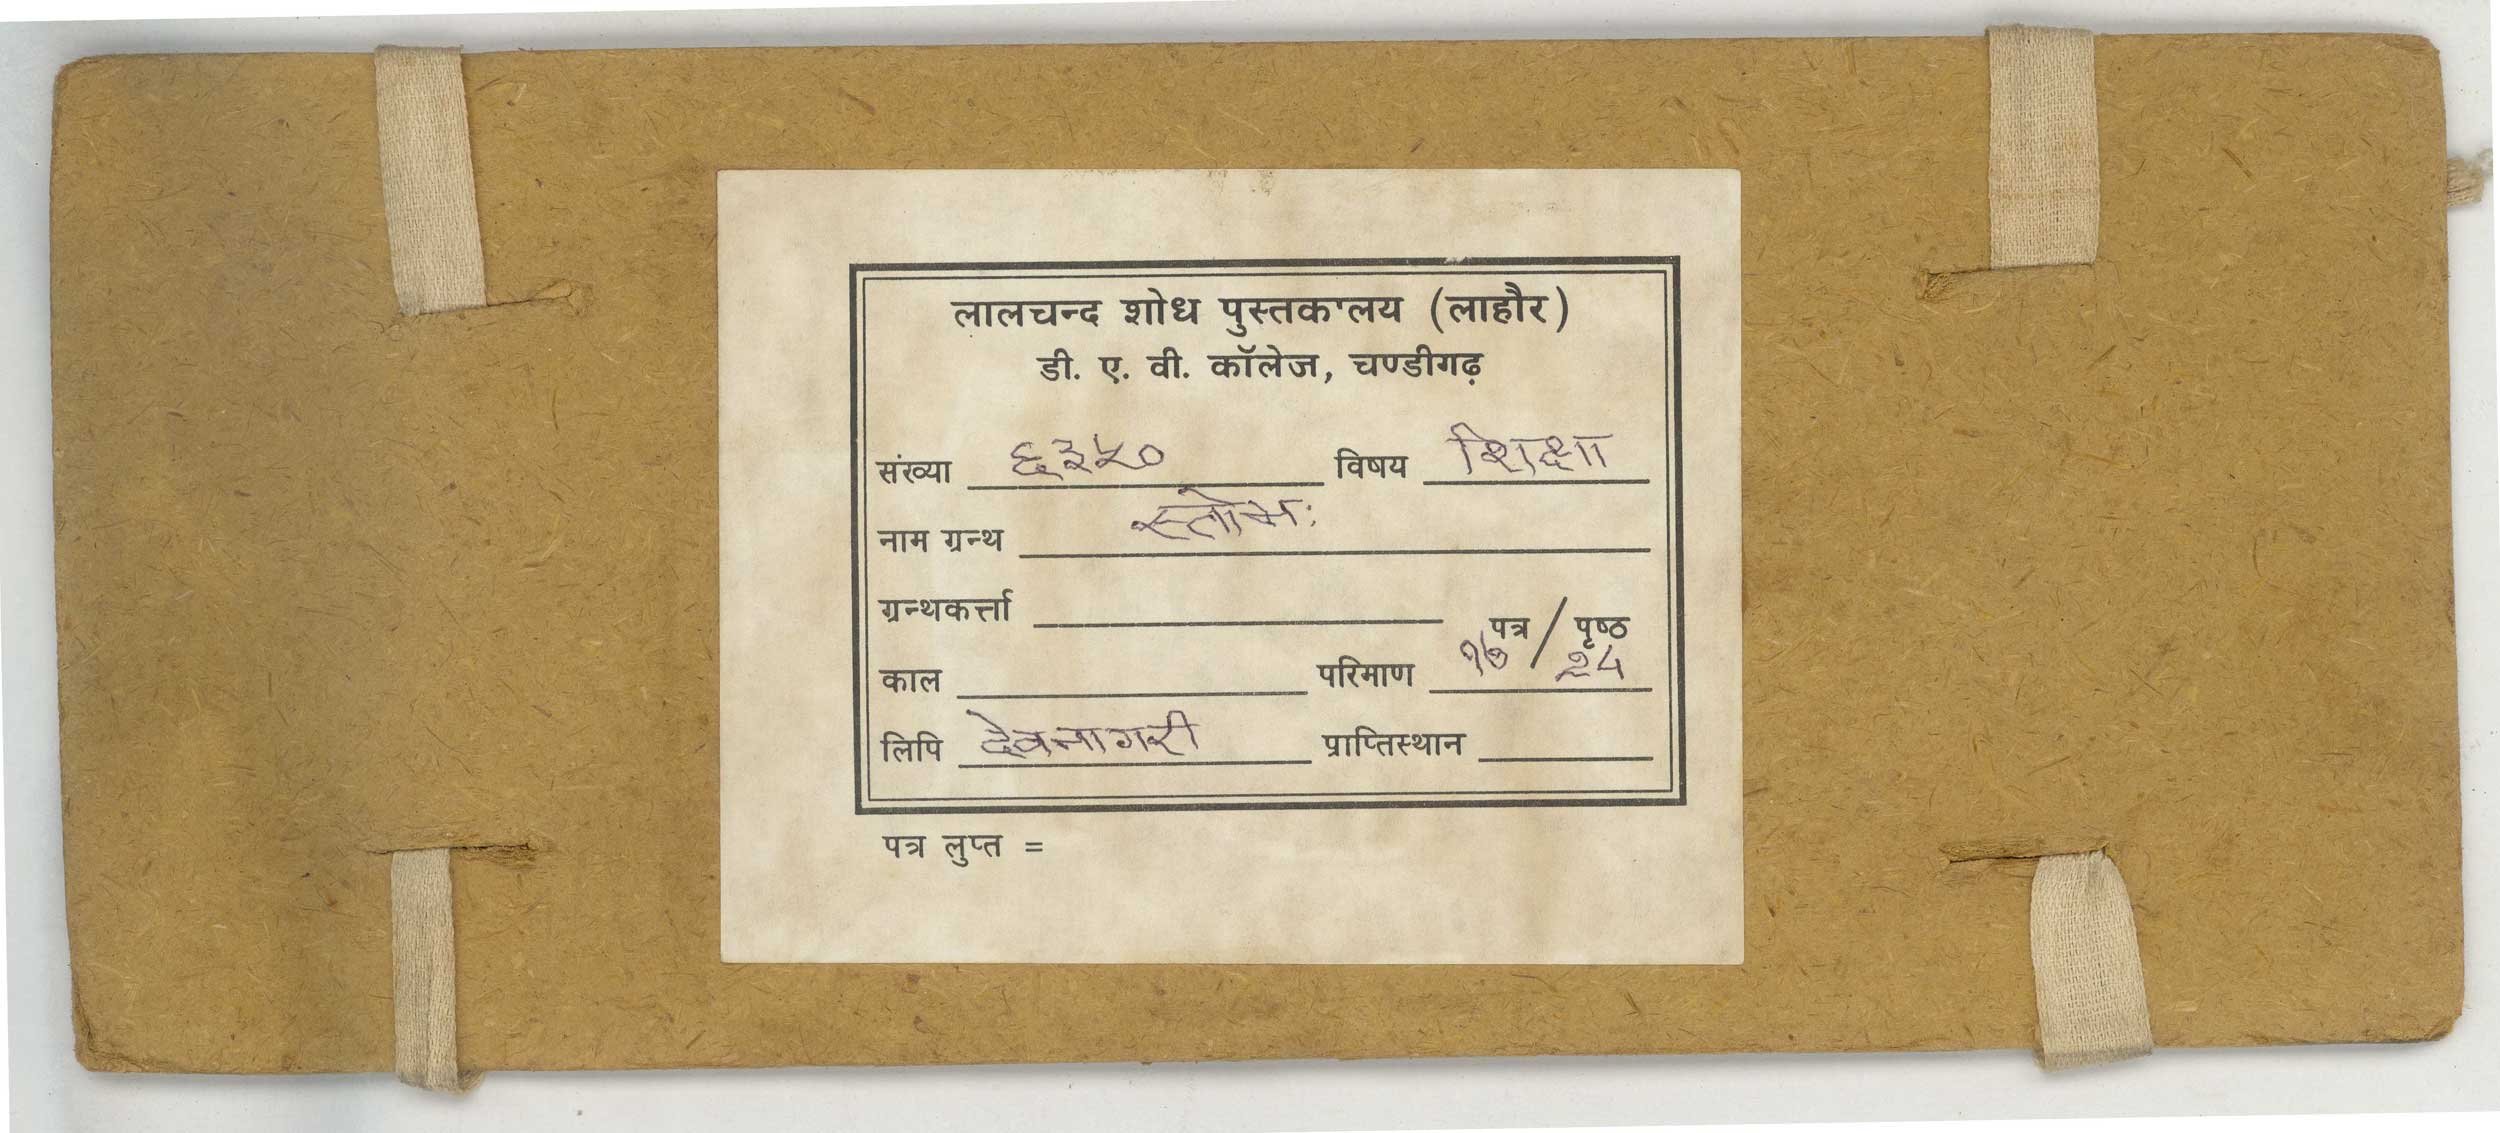 लालचन्द शोध पुस्तकालय (लाहौर)
डी. ए. वी. कॉलेज, चण्डीगढ़
संख्या ६३५० विषय शिक्षा
नाम ग्रन्थ स्तोमः
ग्रन्थकर्त्ता पत्र / पृष्ठ
काल परिमाण १७ / २५
लिपि देवनागरी प्राप्तिस्थान
पत्र लुप्त =